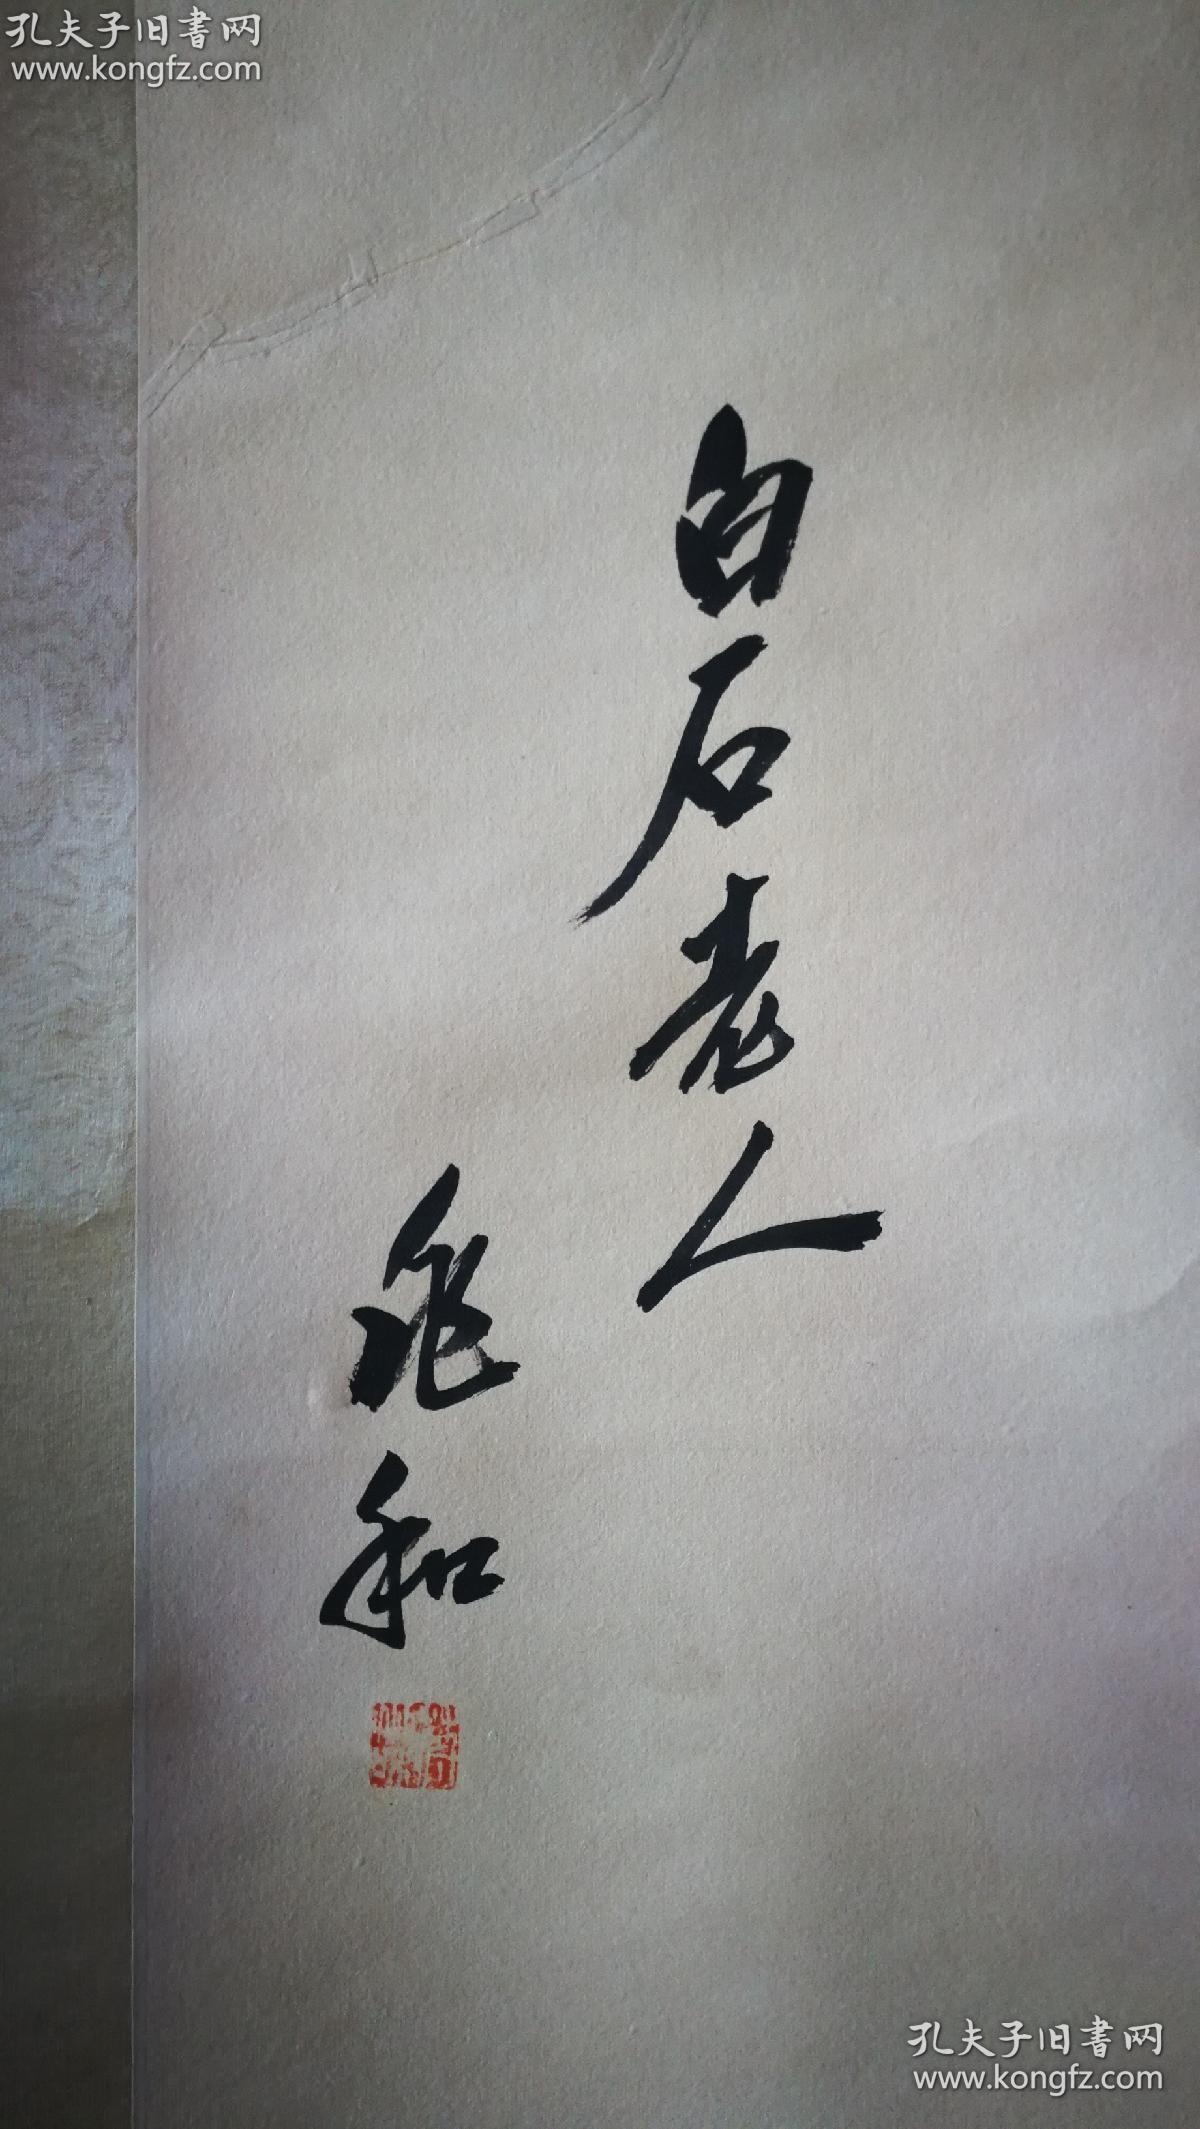 孔夫子旧書网
www.kongfz.com
白石老人
兆和
孔夫子旧書网
www.kongfz.com